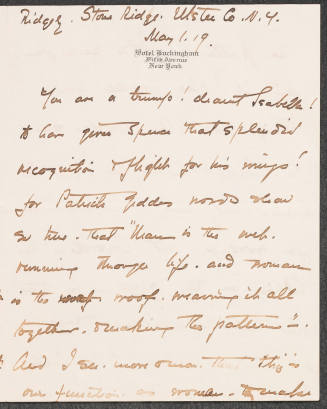 Ridgely. Stone Ridge. Ulster Co. N.Y.
May 1. 19.
Hotel Buckingham
Fifth Avenue
New York
You are a trump! dearest Isabella!
to have given Spence that splendid
recognition & flight for his wings!
for Patrick Geddes words show
so true. that "Man is the web.
running through life. and woman
is the woof. weaving it all
together. & making the pattern".
And I see. more & more. that this is
our function as woman. to make